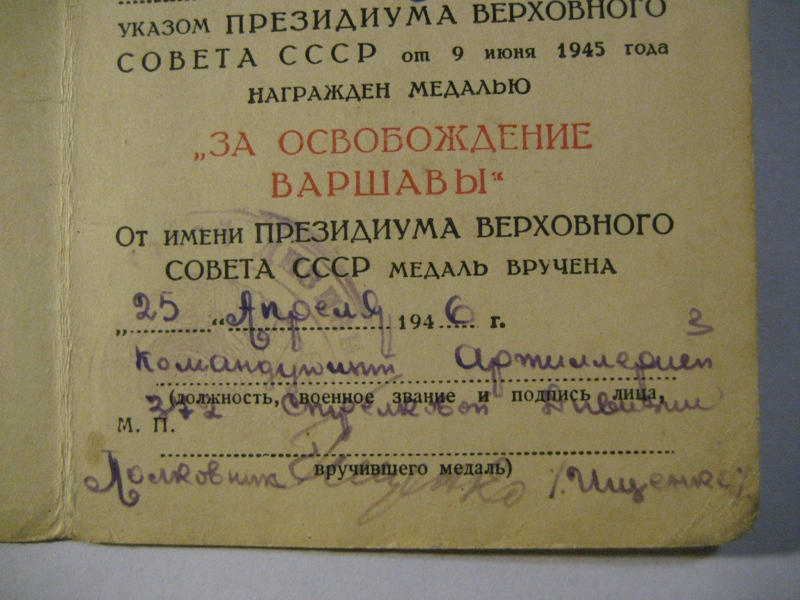 указом ПРЕЗИДИУМА ВЕРХОВНОГО
СОВЕТА СССР от 9 июня 1945 года
НАГРАЖДЕН МЕДАЛЬЮ
„ЗА ОСВОБОЖДЕНИЕ
ВАРШАВЫ“
От имени ПРЕЗИДИУМА ВЕРХОВНОГО
СОВЕТА СССР МЕДАЛЬ ВРУЧЕНА
„25“ Апреля 1946 г.
Командующий Артиллерией
(должность, военное звание и подпись лица,
372 Стрелковой Дивизии
М. П.
вручившего медаль)
Полковник Ищенко /Ищенко/